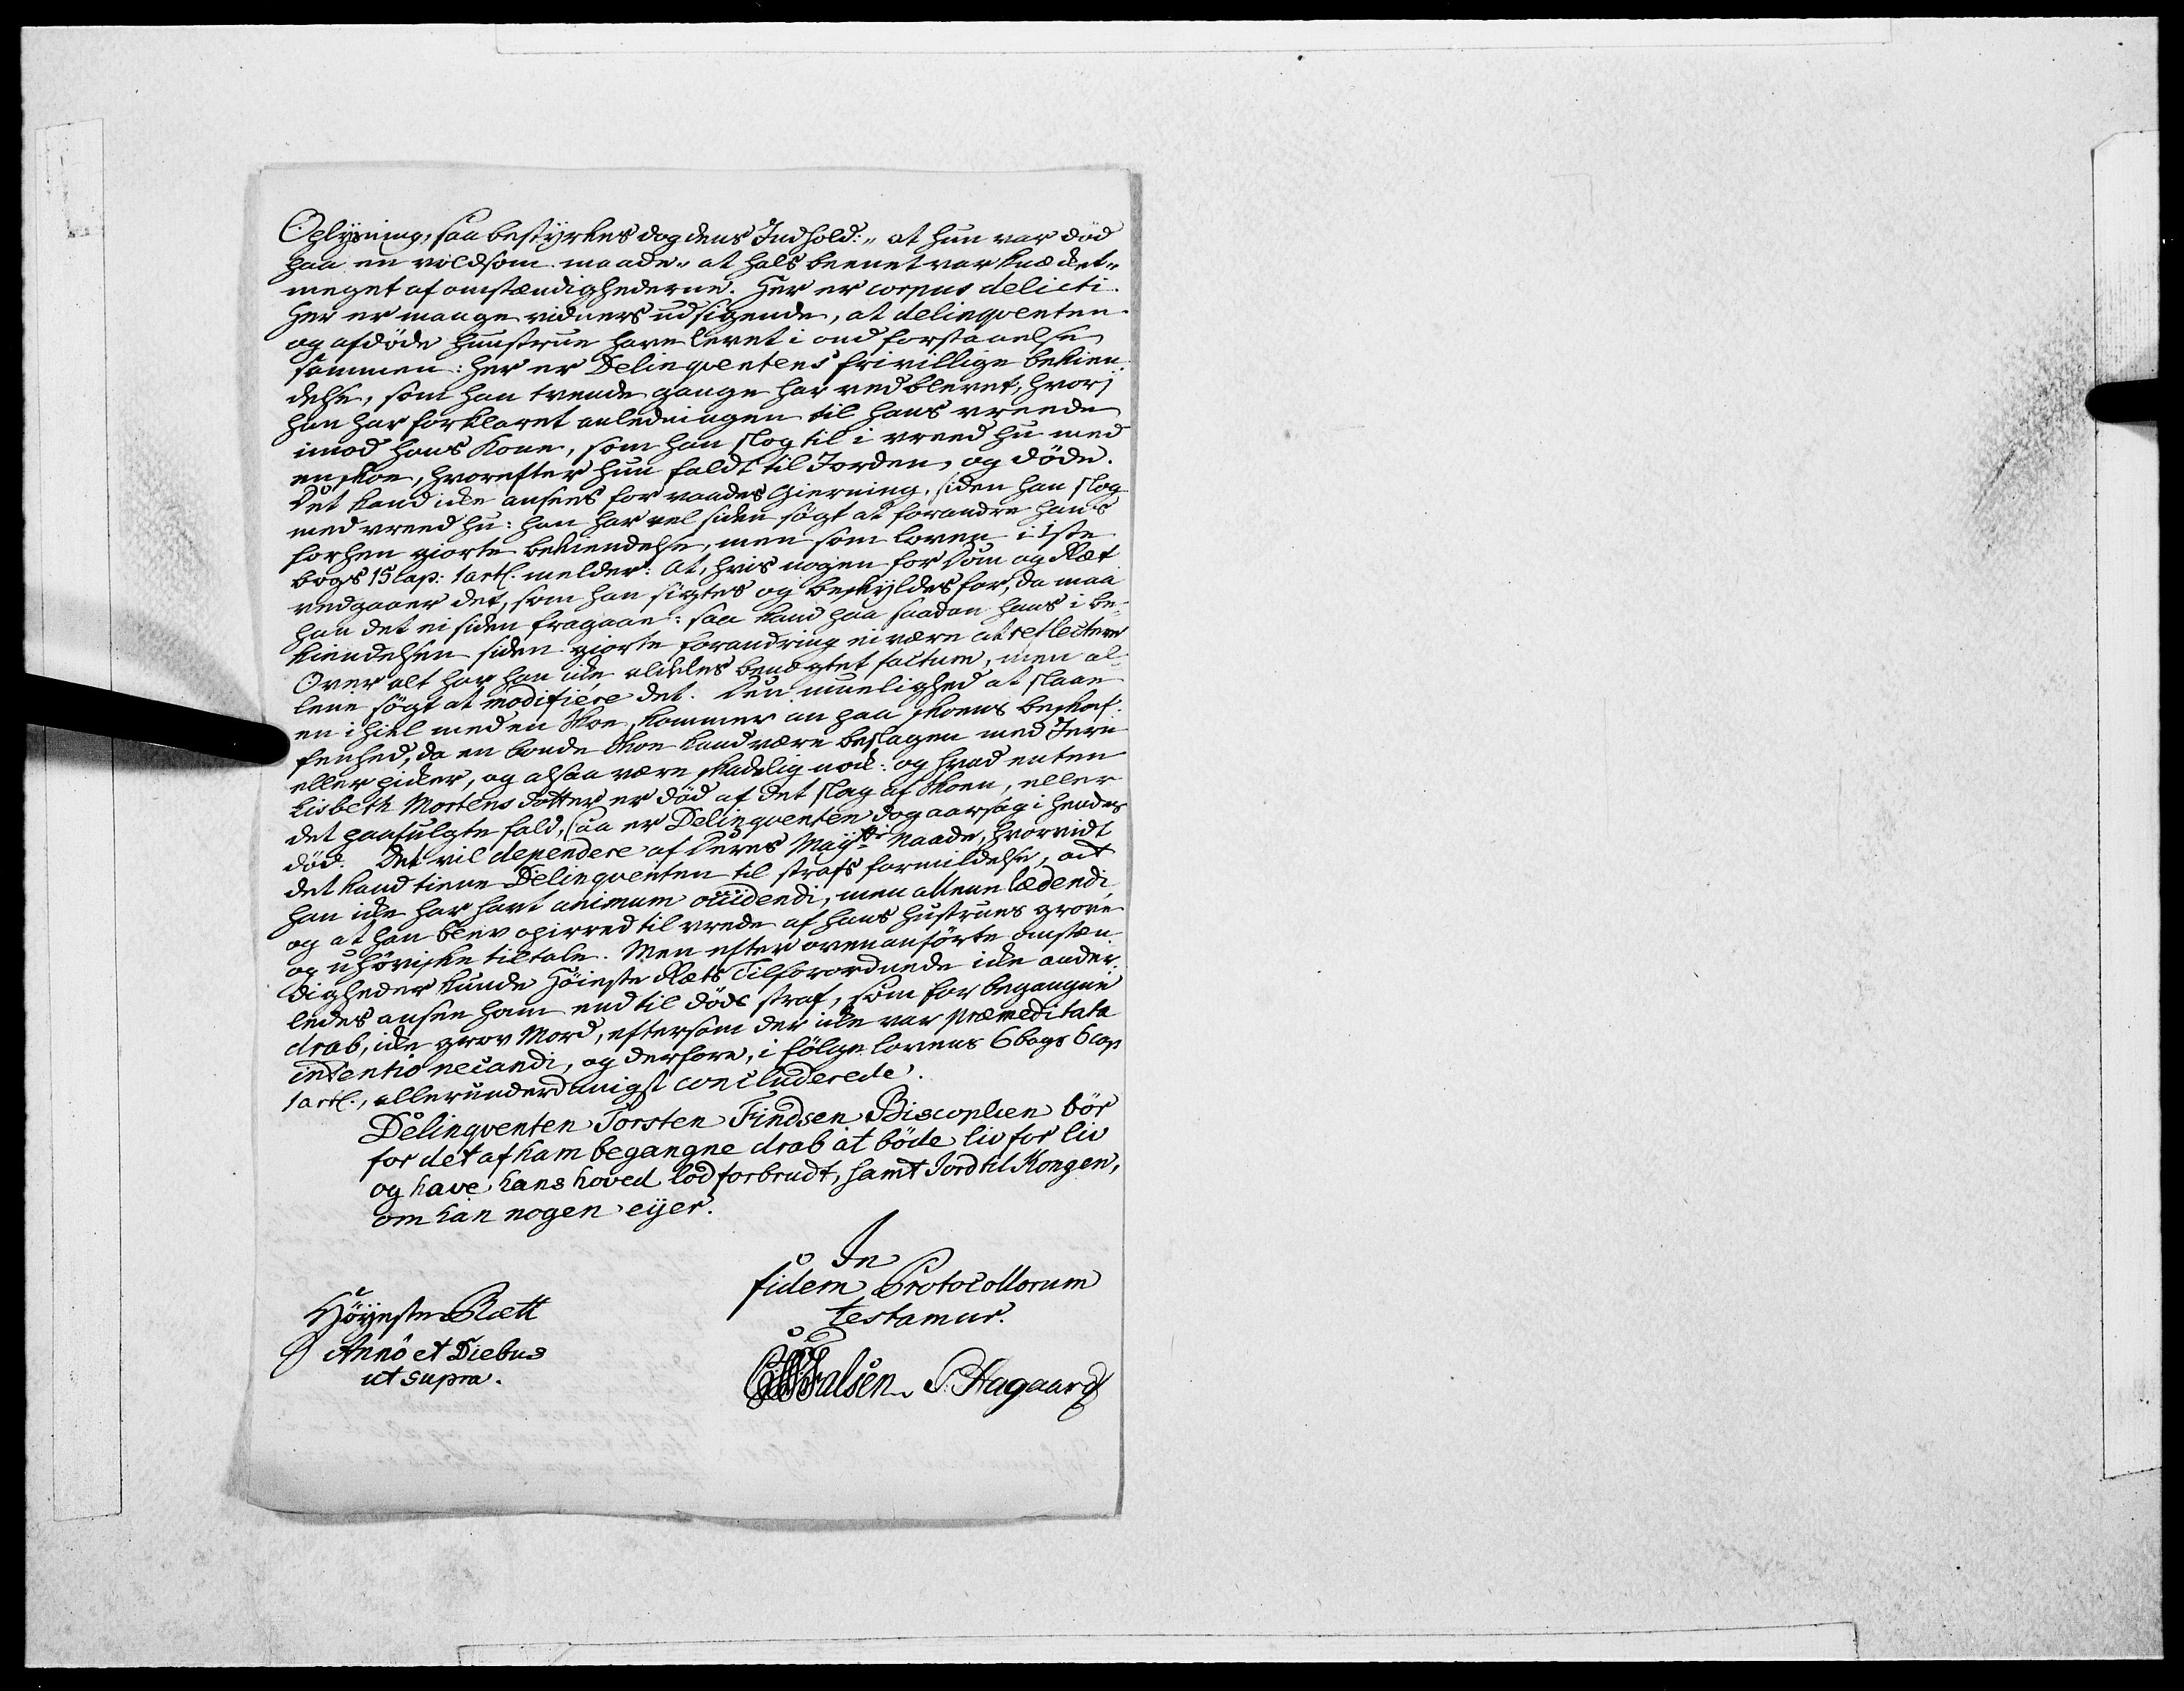 Oplysning, saa bestyrkes dog dens Indhold: „at hun var död
paa en voldsom maade„ at hals beenet var knækket„
meget af omstændighederne. Her er corpus delicti.
Her er mange vidners udsigende, at delinqventen
og afdöde hustrue have levet i ond forstaaelse
sammen: her er Delinqventens frivillige bekien-
delse, som han trende gange har ved blevet, hvorj
han har forklaret anledningen til hans vreede
imod hans Kone, som han slog til i vreed hu med
en skoe, hvorefter hun faldt til Jorden, og döde.
Det kand icke ansees for vaades Gierning, siden han slog
med vreed hu: han har vel siden sögt at forandre hans
forhen giorte bekiendelse, men som loven i 1ste
bogs 15 Cap: 1 artl. melder: At, hvis nogen for Dom og Ræt
vedgaaer det, som han sigtes og beskyldes for, da maa
han det ei siden fragaae: saa kand paa saadan hans i be-
kiendelsen siden giorte forandring ei være at reflectere
Over alt har han icke aldeles benægtet factum, men al-
lene sögt at modificére det. Den muelighed at slaae
en ihiel med en Skoe, kommer an paa skoens beskaf-
fenhed, da en bonde Skoe kand være beslagen med Jern
eller picker, og altsaa være skadelig nok: og hvad enten
Lisbeth Mortens Dotter er död af det slag af Skoen, eller
det paafulgte fald, saa er Delinqventen dog aarsag i hendes
död. Det vil dependere af Deres Mayts Naade, hvorvidt
det kand tiene Delinqventen til strafs formildelse, at
han icke har havt animum occidendi, men allene lædendi,
og at han blev opirred til vrede af hans Hustrues grove
og uhöviske tiltale. Men efter ovenanförte omstæn-
digheder kunde Höieste Ræts Tilforordnede icke ander-
ledes ansee ham end til döds straf, som for begangne
drab, icke grov Mord, eftersom der icke var præmeditata
intentio necandi, og derfore, i fölge lovens 6 bogs 6 Cap
1 artl., allerunderdanigst concluderede.
Delinqventen Torsten Findsen Biscopsen bör
for det af ham begangne drab at böde liv for liv
og have hans hoved lod forbrudt, samt Jord til Kongen,
om han nogen eyer.
In
fidem Protocollorum
testamur.
Höyeste Rætt
Anno et Diebus
ut supra.
Falsen. P. Aagaard